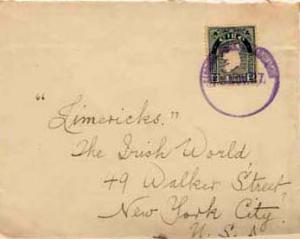 "Limericks."
The Irish World
49 Walker Street
New York City
U. S. A